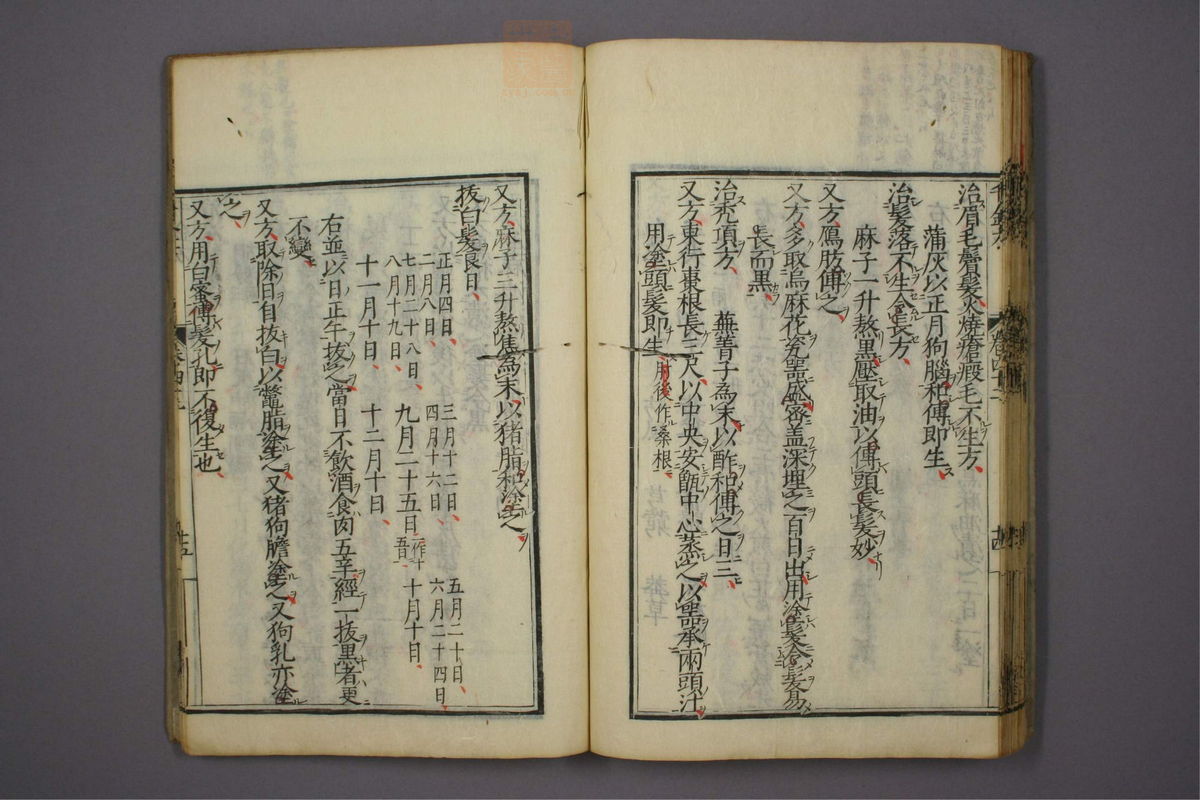 治眉毛鬢髮火燒瘡瘢毛不生方
蒲灰以正月狗腦和傅即生
治髮落不生令長方
麻子一升熬黑壓取油以傅頭長髮妙
又方鴈肪傅之
又方多取烏麻花瓷噐盛密盖深埋之百日出用塗髮令髮易
長而黒
治禿頂方
蕪菁子為末以酢和傅之日三
又方東行棗根長三尺以中央安甑中心蒸之以噐承兩頭汁
用塗頭髮即生肘後作桑根
又方麻子三升熬焦為末以猪脂和塗之
拔白髮良日
正月四日 三月十二日 五月二十日
二月八日 四月十六日 六月二十四日
七月二十八日 九月二十五日一作十五 十月十日
八月十九日
十一月十日 十二月十日
右並以日正午拔之當日不飲酒食肉五辛經一拔黒者更
不變
又方取除日自拔白以鼈脂塗之又猪狗膽塗之又狗乳亦塗
之
又方用白蜜傅髮孔即不復生也